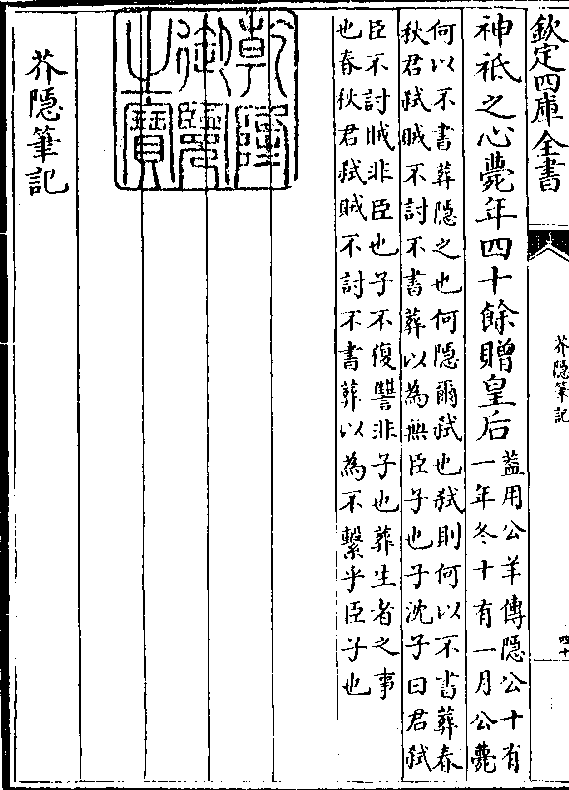 欽定四庫全書
芥隱筆記
四十
神祇之心薨年四十餘贈皇后
葢用公羊傳隱公十有
一年冬十有一月公薨
何以不書葬隱之也何隱爾弑也弑則何以不書葬春
秋君弑賊不討不書葬以為無臣子也子沈子曰君弑
臣不討賊非臣也子不復讐非子也葬生者之事
也春秋君弑賊不討不書葬以為不繫乎臣子也
乾隆
御覽
之寶
芥隱筆記